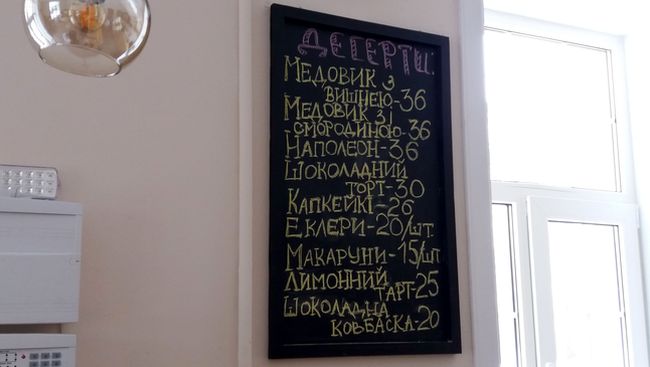 ДЕСЕРТИ:
МЕДОВИК З
ВИШНЕЮ-36
МЕДОВИК ЗІ
СМОРОДИНОЮ-36
НАПОЛЕОН-36
ШОКОЛАДНИЙ
ТОРТ-30
КАПКЕЙКІ-26
ЕКЛЕРИ-20/ШТ.
МАКАРУНИ-15/ШТ
ЛИМОННИЙ
ТАРТ-25
ШОКОЛАДНА
КОВБАСКА-20